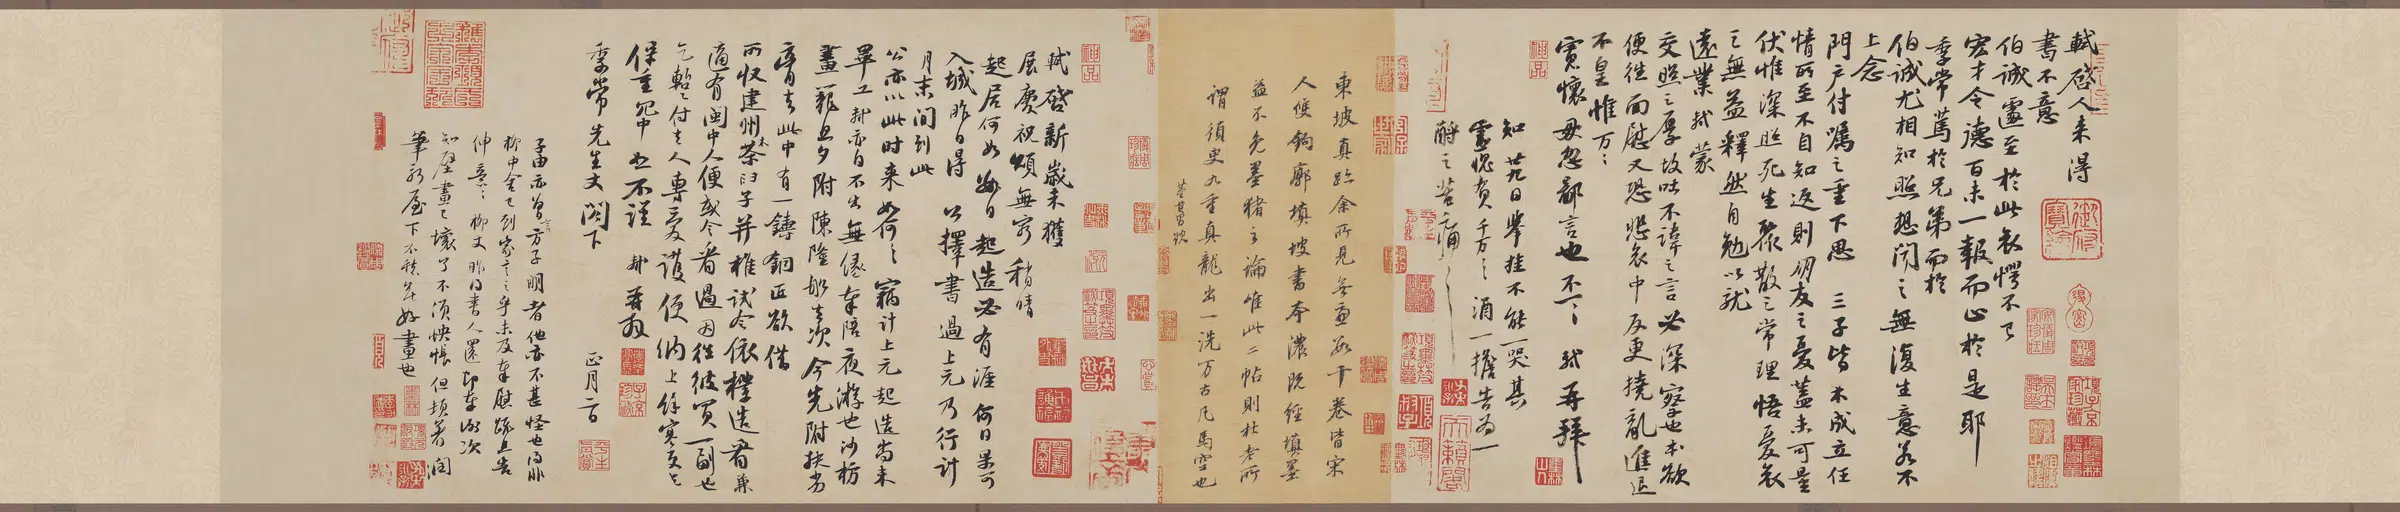 軾啓人来得
書不意
伯誠遽至於此哀愕不已
宏才令德百未一報而止於是耶
季常篤於兄弟而於
伯誠尤相知照想聞之無復生意若不
上念
門戶付囑之重下思三子皆未成立任
情所至不自知返則朋友之憂蓋未可量
伏惟深照死生聚散之常理悟憂哀
之無益釋然自勉以就
遠業軾蒙
交照之厚故吐不諱之言必深察也本欲
便往面慰又恐悲哀中反更撓亂進退
不皇惟万万
寬懷毋忽鄙言也不一一軾再拜
知廿九日舉掛不能一哭其
靈愧負千万千万酒一擔告為一
酹之苦痛苦痛
東坡真跡余所見無慮數十卷皆宋
人雙鉤廓填坡書本濃既經填墨
益不免墨豬之論惟此二帖則杜老所
謂須臾九重真龍出一洗万古凡馬空也
董其昌跋
軾啓新歲未獲
展慶祝頌無窮稍晴
起居何如數日起造必有涯何日果可
入城昨日得公擇書過上元乃行計
月末間到此
公亦以此時来如何如何竊計上元起造尚未
畢工軾亦自不出無緣奉陪夜游也沙枋
畫籠旦夕附陳隆船去次今先附扶劣
膏去此中有一鑄銅匠欲借
所收建州木茶臼子并椎試令依樣造看兼
適有閩中人便或令看過因往彼買一副也
乞暫付去人專愛護便納上餘寒更乞
保重冗中恕不謹軾再拜
季常先生丈閣下
正月二日
子由亦曾言方子明者他亦不甚怪也得非
柳中舍已到家言之乎未及奉慰疏且告
伸意伸意柳丈昨得書人還即奉謝次
知壁畫已壞了不須怏悵但頓著潤
筆新屋下不愁無好畫也